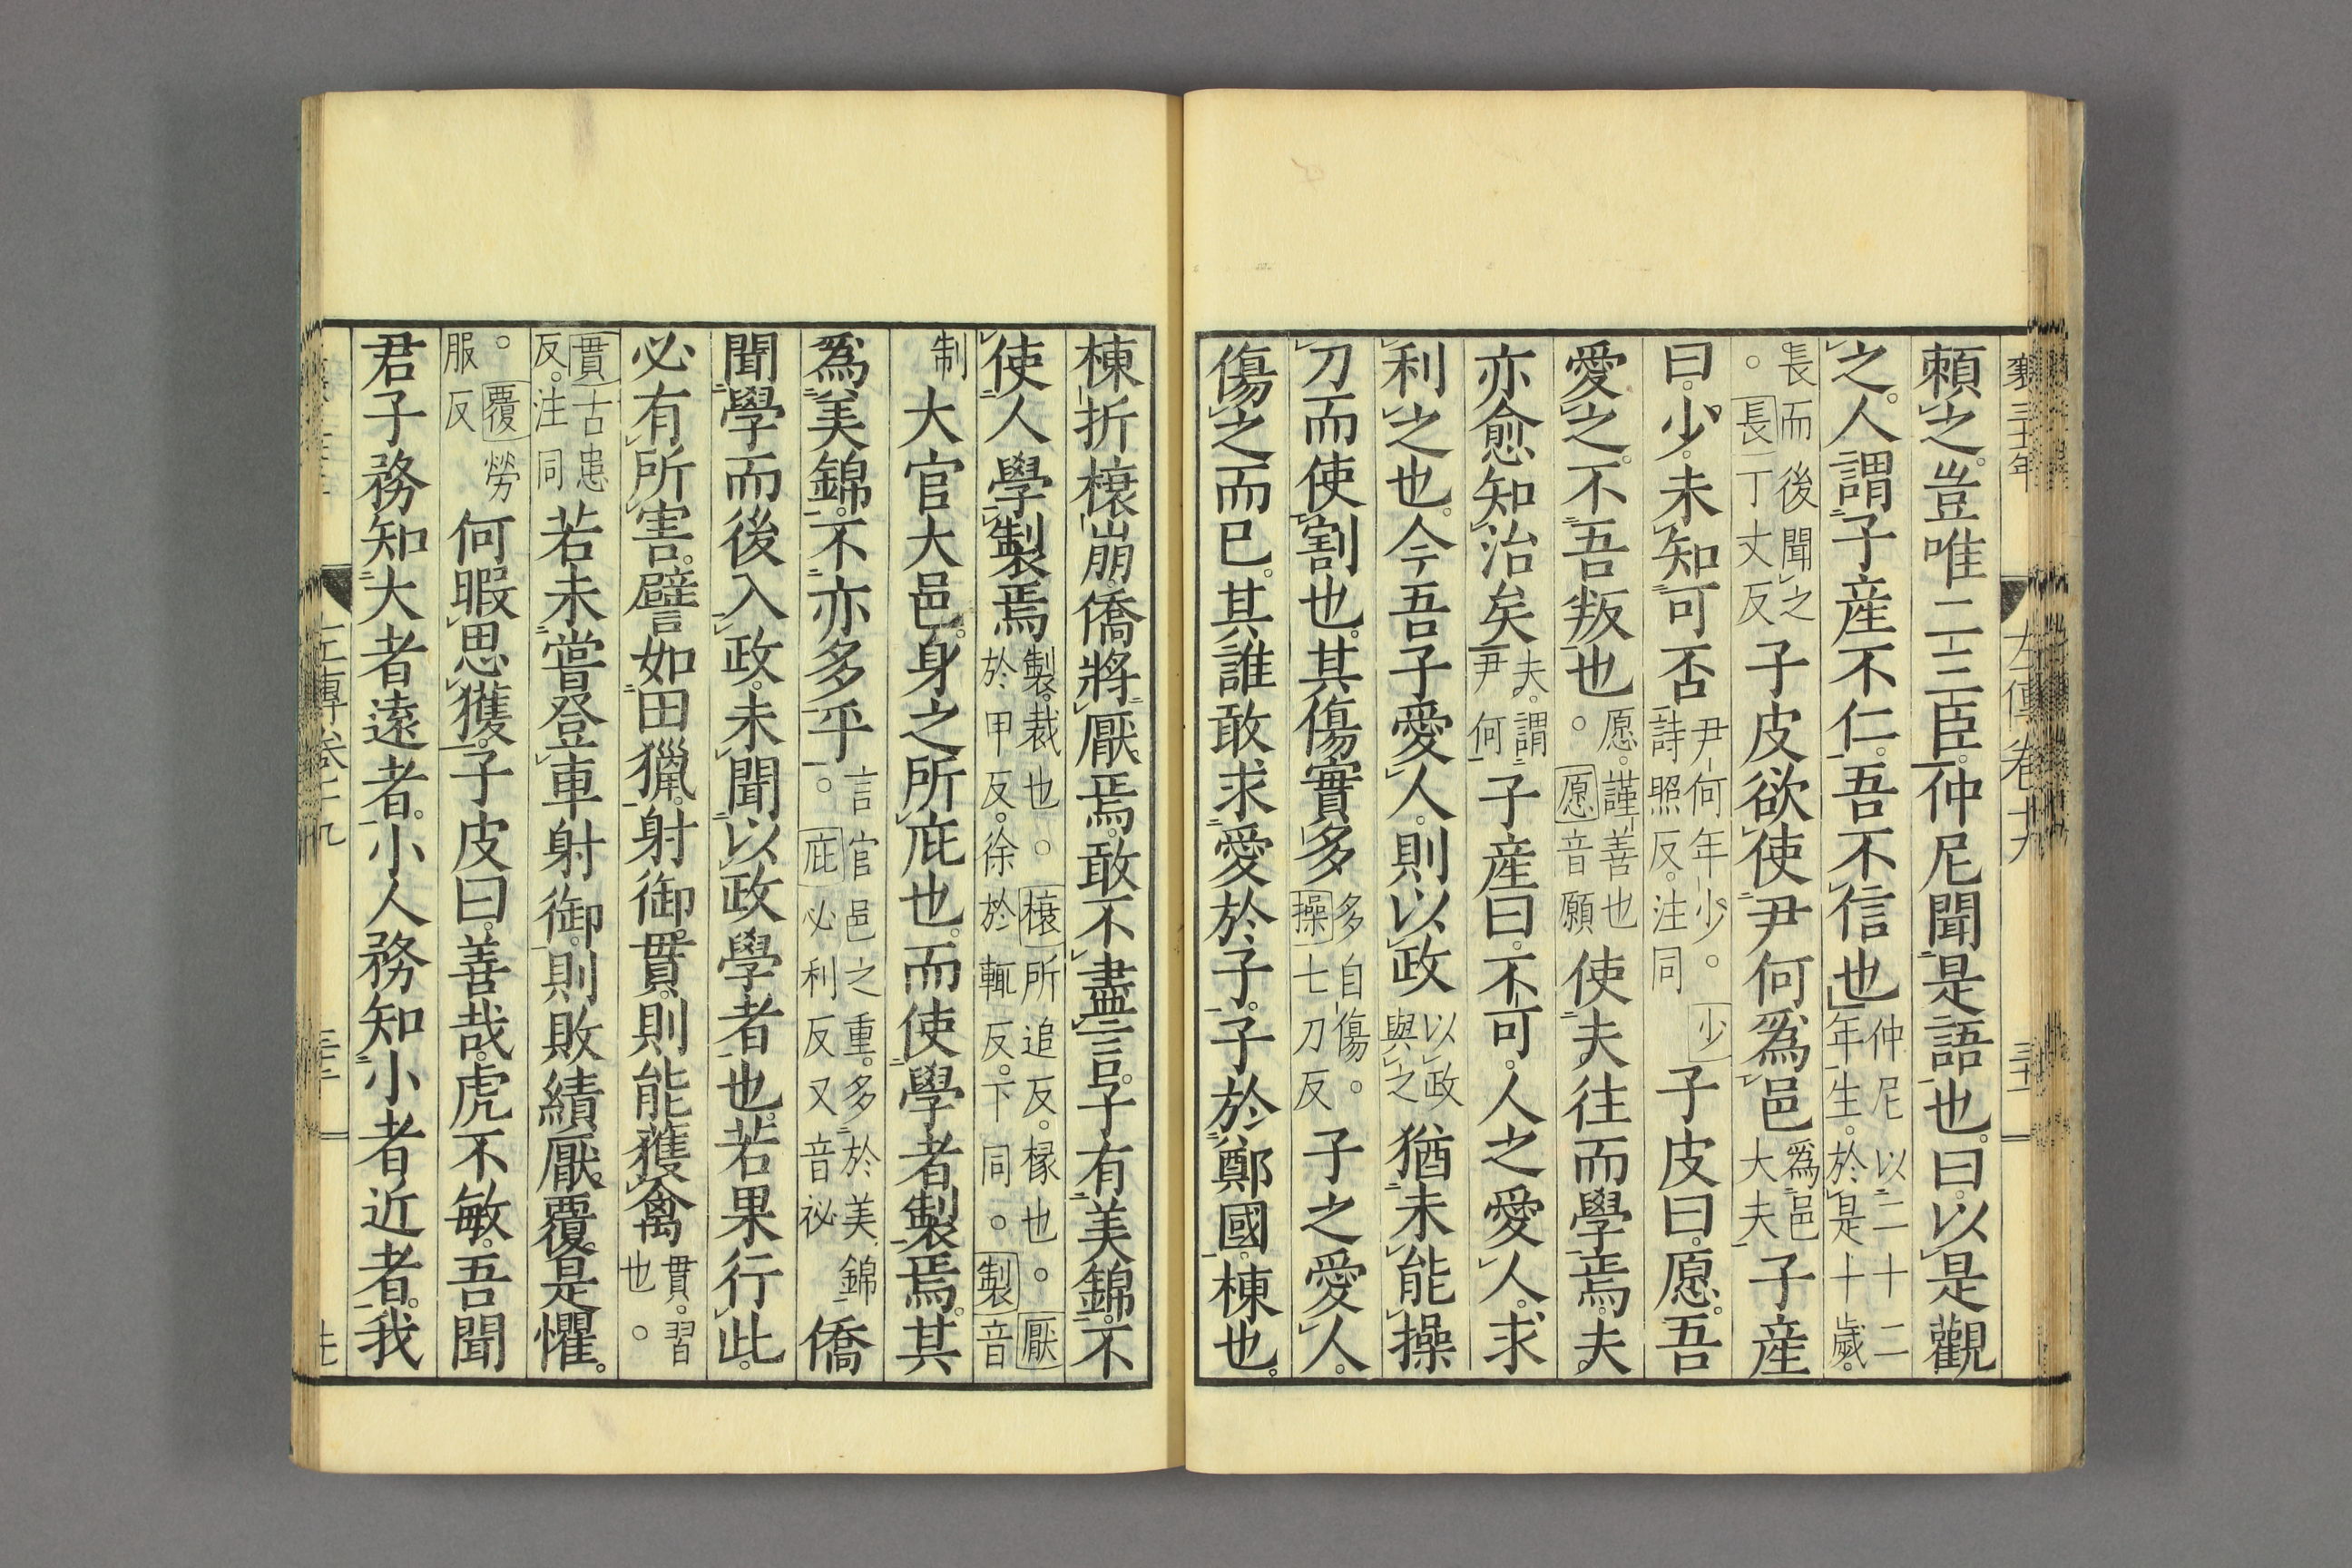 襄三十一年 左傳卷十九 三十一
賴之。豈唯二三臣。仲尼聞是語也。曰。以是觀
之。人謂子産不仁。吾不信也仲尼以二十二年生。於是十歲。
長而後聞之。長丁丈反子皮欲使尹何爲邑爲邑大夫子産
曰。少。未知可否尹何年少。少詩照反。注同子皮曰。愿。吾
愛之。不吾叛也愿。謹善也。愿音願使夫往而學焉。夫
亦愈知治矣夫。謂尹何子産曰。不可。人之愛人。求
利之也。今吾子愛人。則以政以政與之猶未能操
刀而使割也。其傷實多多自傷。操七刀反子之愛人。
傷之而已。其誰敢求愛於子。子於鄭國。棟也。
棟折榱崩。僑將厭焉。敢不盡言。子有美錦。不
使人學製焉製。裁也。榱所追反。椽也。厭於甲反。徐於輒反。下同。製音
制大官大邑。身之所庇也。而使學者製焉。其
爲美錦。不亦多乎言官邑之重。多於美錦。庇必利反又音祕僑
聞學而後入政。未聞以政學者也。若果行此。
必有所害。譬如田獵。射御貫。則能獲禽貫。習也。
貫古患反。注同若未嘗登車射御。則敗績厭覆。是懼。
何暇思獲。覆芳服反子皮曰。善哉。虎不敏。吾聞
君子務知大者遠者。小人務知小者近者。我